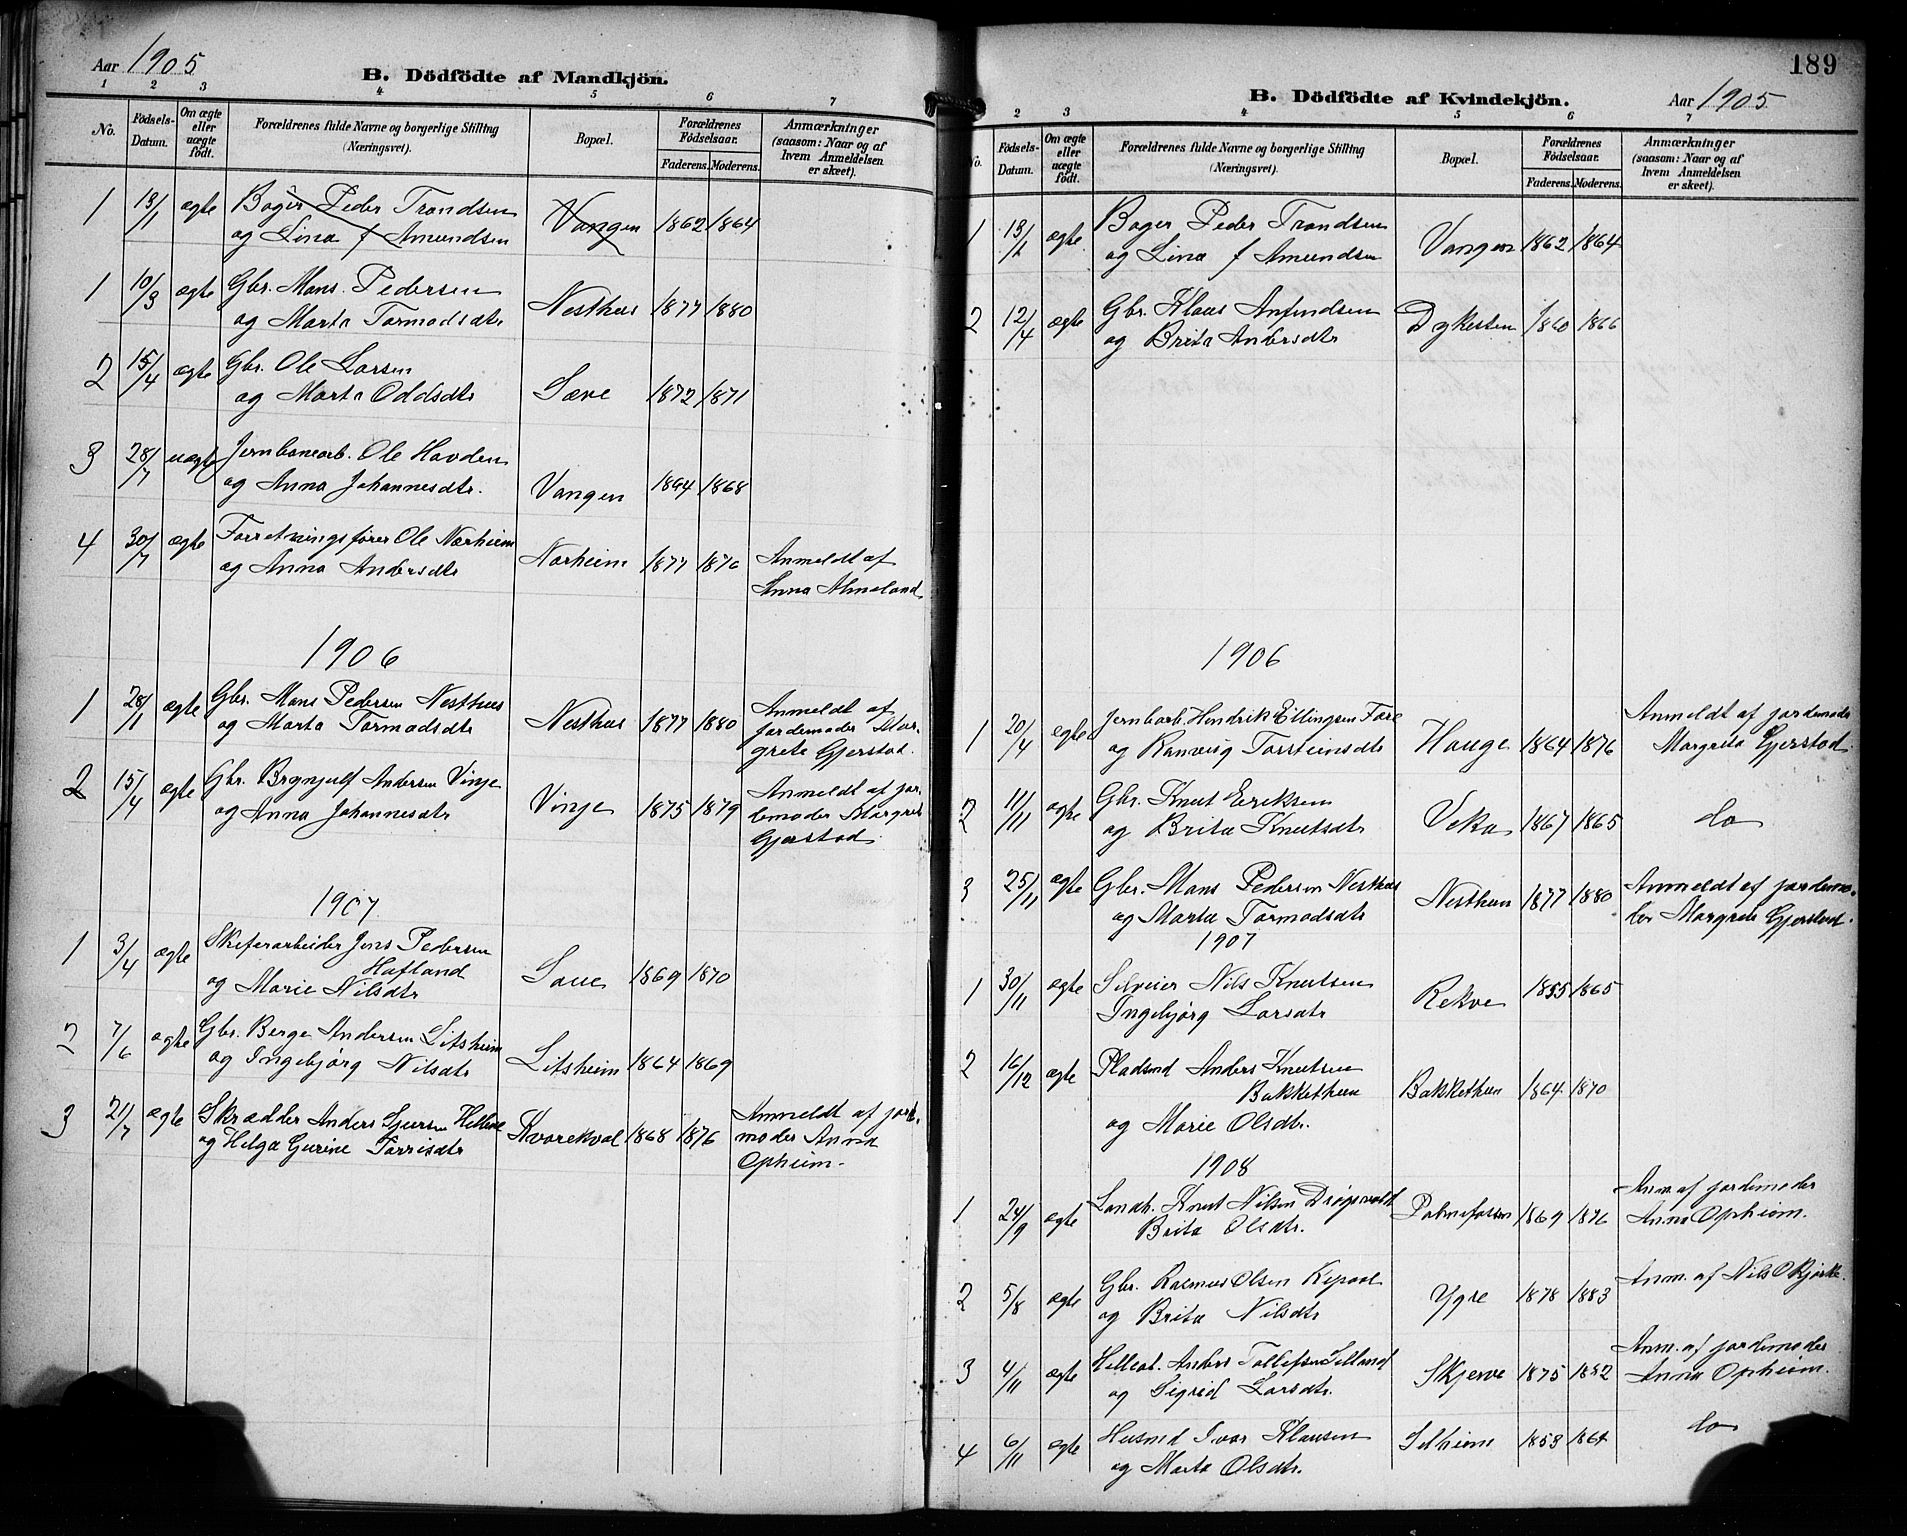 Aar 1905
B. Dödfödte af Mandkjön.
1 2 3 4 5 6 7
No. Födsels-Datum. Om ægte eller uægte födt. Forældrenes fulde Navne og borgerlige Stilling (Næringsvei). Bopæl. Forældrenes Födselsaar. Faderens. Moderens. Anmærkninger (saasom: Naar og af hvem Anmeldelsen er skeet).
1 13/1 ægte Bager Peder Trondsen Vangen 1862 1864
og Lina f Amundsen
1 10/3 ægte Gbr. Mons Pedersen Nesthus 1877 1880
og Marta Tormodsdtr
2 15/4 ægte Gbr. Ole Larsen
og Marta Oddsdtr Sæve 1872 1871
3 28/7 uægte Jernbanearb. Ole Havden
og Anna Johannesdtr. Vangen 1868
4 30/7 ægte Forretningsfører Ole Nærheim
og Anna Andersdtr Nærheim 1877 1876 Anmeldt af
Anna Almeland
1906
1 28/1 ægte Gbr. Mons Pedersen Nesthus
og Marta Tormodsdtr Nesthus 1877 1880 Anmeldt af
jordemoder Mar-
grete Gjerstad.
2 15/4 ægte Gbr. Brynjulf Andersen Vinje
og Anna Johannesdtr Vinje 1875 1879 Anmeldt af jor-
demoder Margrete
Gjerstad
1907
1 3/4 ægte Skiferarbeider Jens Pedersen
Hafland
og Marie Nilsdtr 1869 1870
2 7/6 ægte Gbr. Berge Andersen Litsheim
og Ingebjørg Nilsdtr Litsheim 1864 1869
3 21/7 ægte Skrædder Anders Sjursen
og Helga Gurine Torrisdtr Kvarekval 1868 1876 Anmeldt af jorde-
moder Anna
Opheim.
189
B. Dödfödte af Kvindekjön. Aar 1905
2 3 4 5 6 7
No. Födsels-Datum. Om ægte eller uægte födt. Forældrenes fulde Navne og borgerlige Stilling (Næringsvei). Bopæl. Forældrenes Födselsaar. Faderens. Moderens. Anmærkninger (saasom: Naar og af hvem Anmeldelsen er skeet).
1 13/1 ægte Bager Peder Trondsen
og Lina f Amundsen Vangen 1862 1864
2 12/4 ægte Gbr. Klaus Anfindsen
og Brita Andersdtr Dykesten 1860 1866
1906
1 20/4 ægte Jernbarb. Hendrik Ellingsen
og Ranveig Torsteinsdtr Hauge 1864 1876 Anmeldt af jordemoder
Margrete Gjerstad
2 11/11 ægte Gbr. Knut Eriksen
og Brita Knutsdtr Veka 1867 1865 do
3 25/11 ægte Gbr. Mons Pedersen Nesthus
og Marta Tormodsdtr Nesthus 1877 1880 Anmeldt af jordemo-
der Margrete Gjerstad.
1907
1 30/11 ægte Selveier Nils Knutsen
Ingebjørg Larsdtr Rekve 1855 1865
2 16/12 ægte Pladsmd Anders Knutsen
Bakkethun Bakkethun 1864 1870
og Marie Olsdtr.
1908
1 24/9 ægte Landh. Knut Nilsen
Brita Olsdtr. Palmafossen 1869 1876 Anm. af jordemoder
Anna Opheim.
2 5/8 ægte Gbr. Rasmus Olsen
og Brita Nilsdtr Ygre 1878 1883 Anm. af Nils O Bjørke.
3 4/11 ægte Anders Tollefsen
og Sigrid Larsdtr. Skjerve 1875 1882 Anm. af jordemoder
Anna Opheim.
4 6/11 ægte Husmd Ivar Klausen
og Marta Olsdtr. Selheim 1853 do